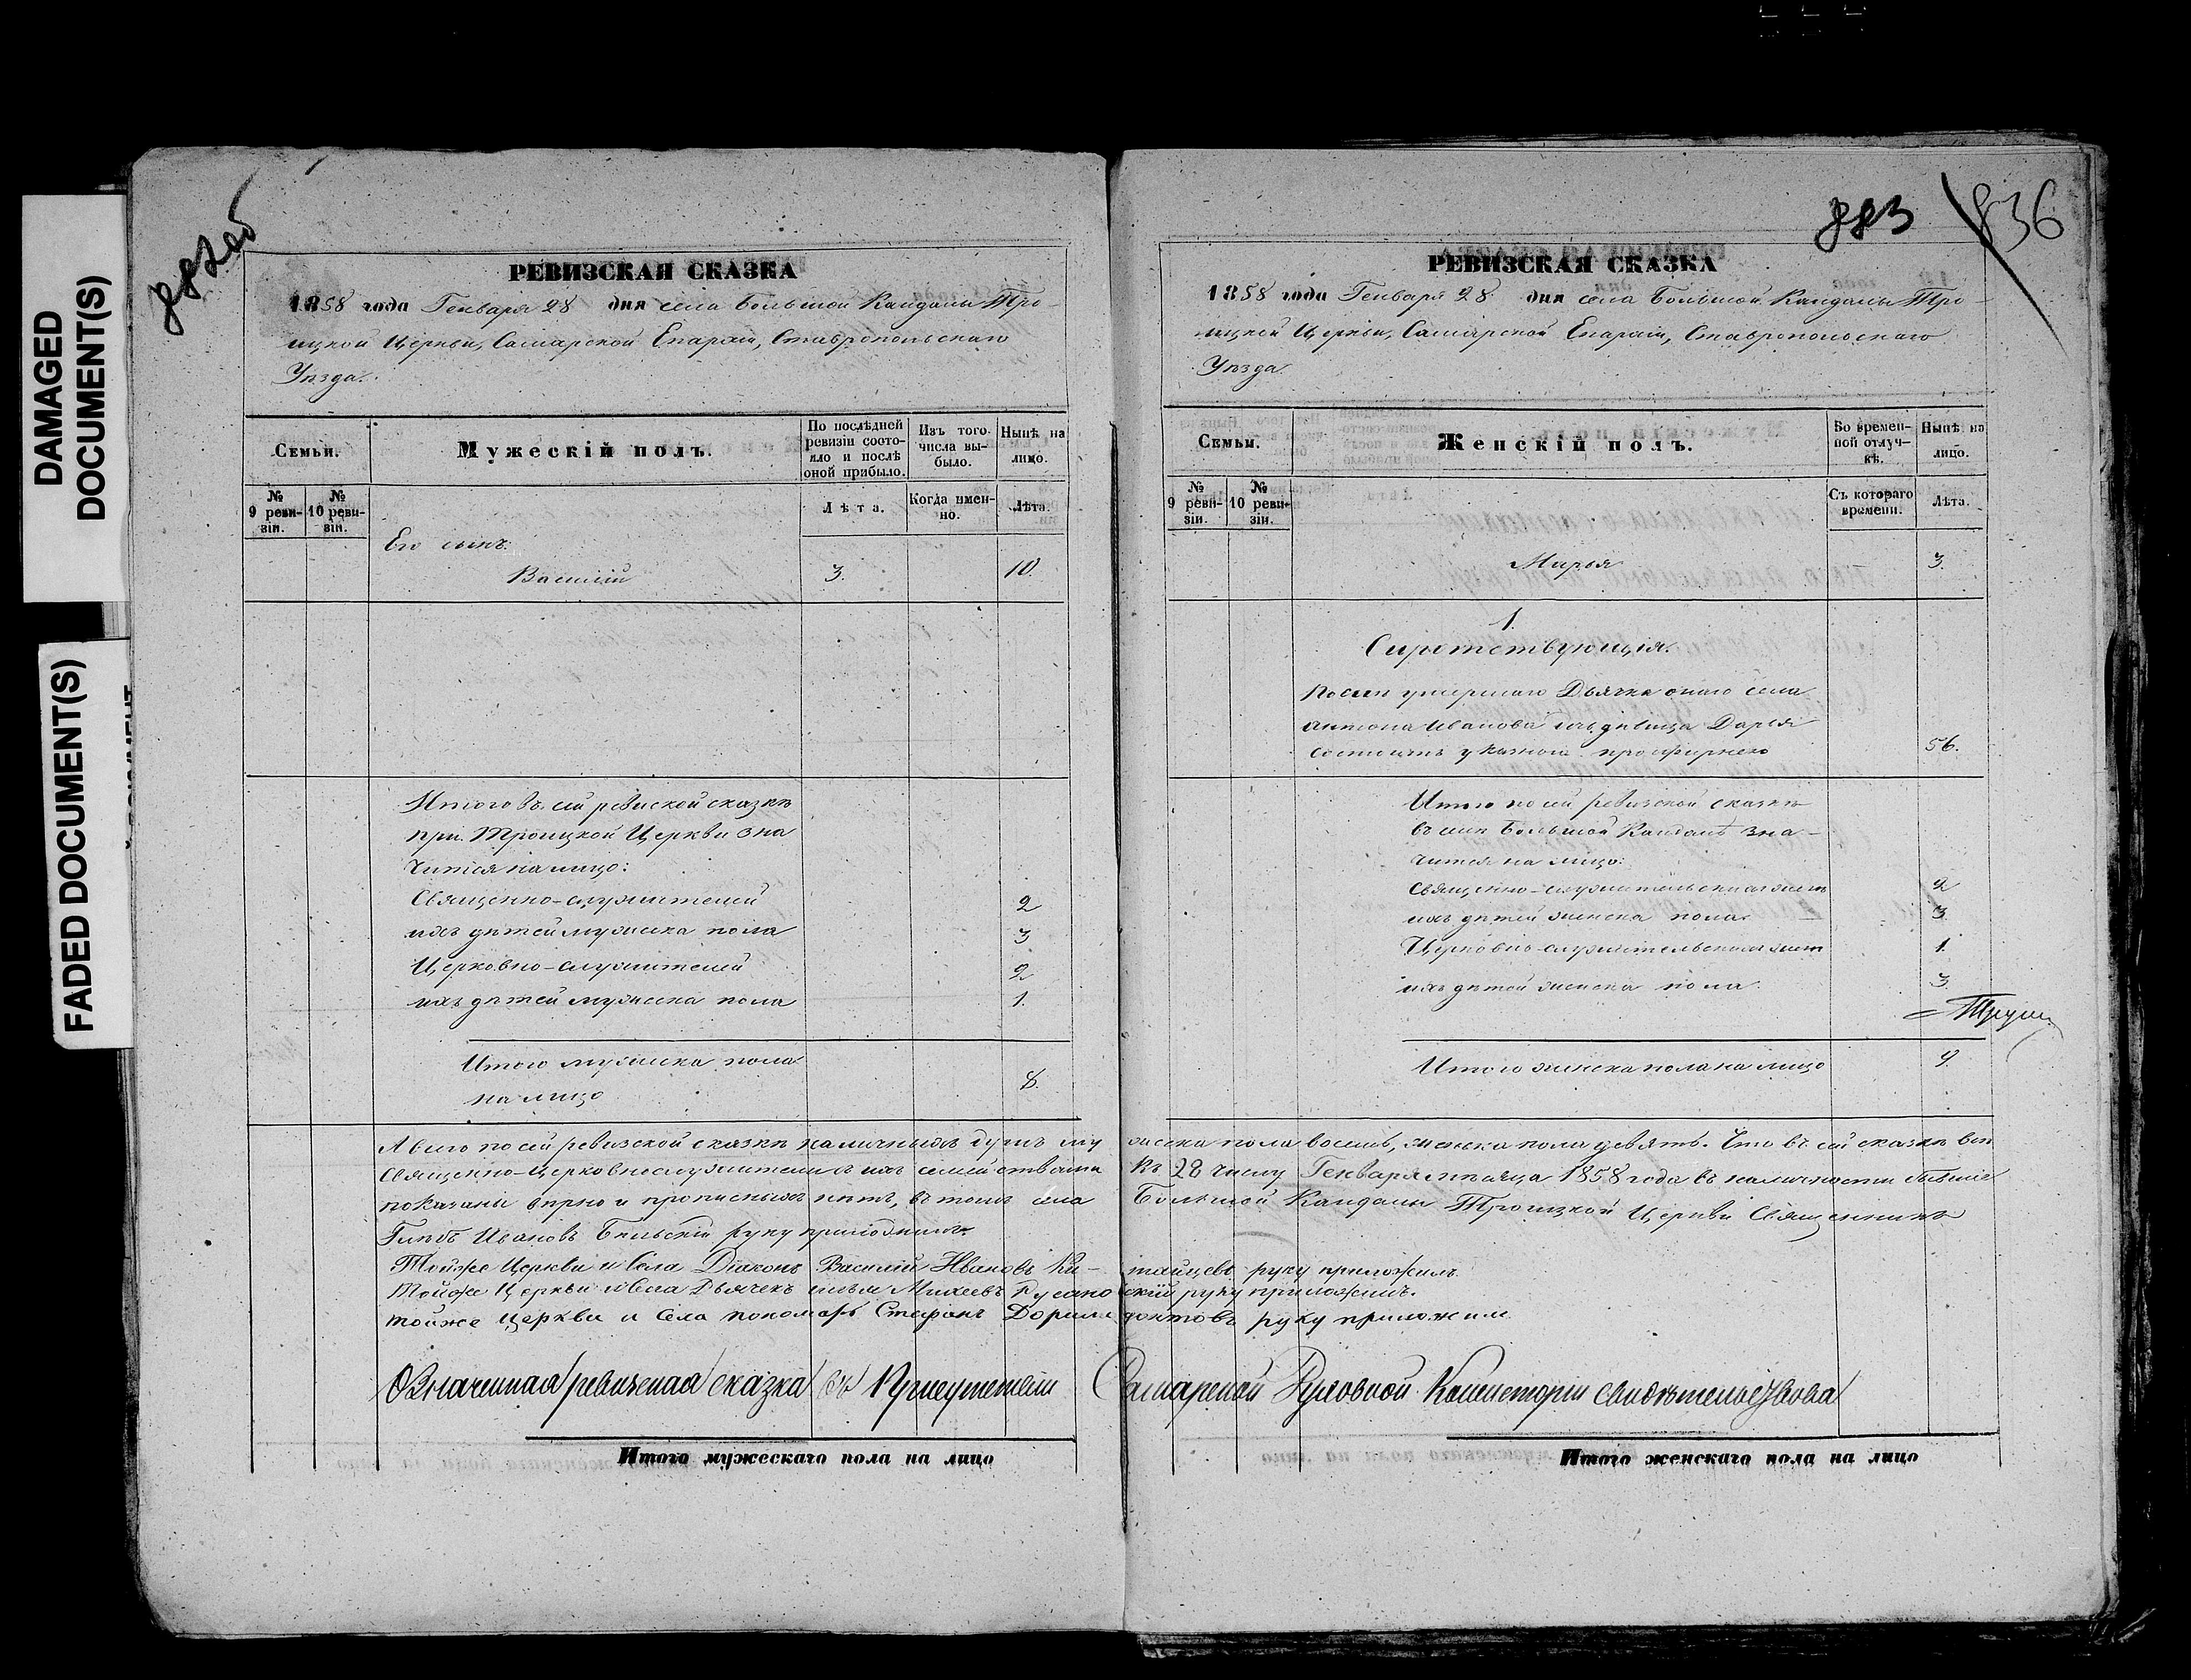 DAMAGED
DOCUMENT(S)
FADED DOCUMENT(S)
РЕВИЗСКАЯ СКАЗКА
1858 года Генваря 28 дня села Большой Кандалы Тро-
ицкой Церкви, Самарской Епархіи, Ставропольскаго
Уѣзда.
Семьи.
Мужескій полъ.
По послѣдней ревизіи состояло и послѣ оной прибыло.
Изъ того числа выбыло.
Нынѣ на лицо.
№ 9 ревизіи.
№ 10 ревизіи.
Лѣта.
Когда именно.
Лѣта.
Его сынъ:
Василій 3. 10.
Итого въ сей ревиской сказкѣ
при Троицкой Церкви зна
чится на лицо:
Священно-служителей 2
ихъ дѣтей мужеска пола 3
Церковно-служителей 2
ихъ дѣтей мужеска пола 1.
Итого мужеска пола
на лицо 8.
883
836
РЕВИЗСКАЯ СКАЗКА
1858 года Генваря 28 дня села Большой Кандалы Тро-
ицкой Церкви, Самарской Епархіи, Ставропольскаго
Уѣзда
Семьи.
Женскій полъ.
Во временной отлучкѣ.
Нынѣ на лицо.
№ 9 ревизіи.
№ 10 ревизіи.
Съ котораго времени.
Лѣта.
Марья 3.
1.
Сиротствующія.
Послѣ умершаго Дьячка онаго села
Антона Иванова дѣвица Дарья
состоитъ указною просфирнею 56.
Итого по сей ревизской сказкѣ
въ селѣ Большой Кандалѣ зна-
чится на лицо:
Священно-служительскихъ женъ 2
ихъ дѣтей женска пола 3.
Церковно-служительскихъ женъ 1.
ихъ дѣтей женска пола 3.
Итого женска пола на лицо 9.
А всего по сей ревизской сказкѣ наличныхъ душъ му жеска пола восемь, женска пола девять. Что въ сей сказкѣ всѣ
Священно-церковнослужители съ ихъ семействами къ 28 числу Генваря мѣсяца 1858 года въ наличности бывшіе
показаны вѣрно и прописныхъ нѣтъ, въ томъ села Большой Кандалы Троицкой Церкви Священникъ
Глѣбъ Ивановъ Бѣльскій руку приложилъ.
Тойже Церкви и Села Діаконъ Василій Ивановъ Ки- тайцевъ руку приложилъ.
Тойже Церкви и Села Дьячекъ Михеевъ руку приложилъ.
тойже Церкви и Села пономарь Стефанъ Дориме донтовъ руку приложилъ
Означенная ревизская сказка въ Присутствіи Самарской Духовной Консисторіи свидѣтельствована
Итого мужескаго пола на лицо
Итого женскаго пола на лицо